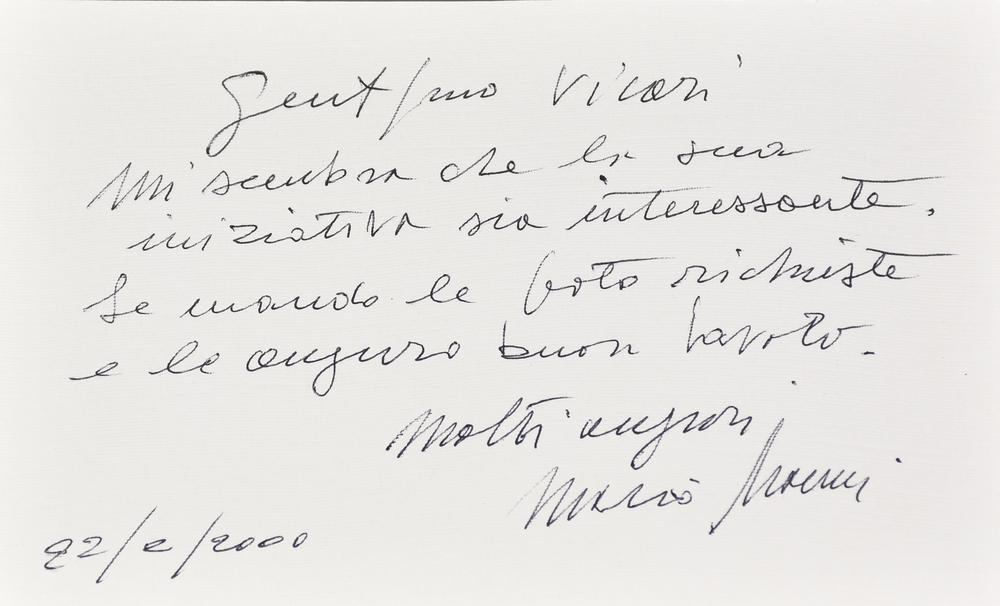 Gent/mo Vicari
Mi sembra che la sua
iniziativa sia interessante.
Le mando le foto richieste
e le auguro buon lavoro.
Molti auguri
Mario
22/2/2000